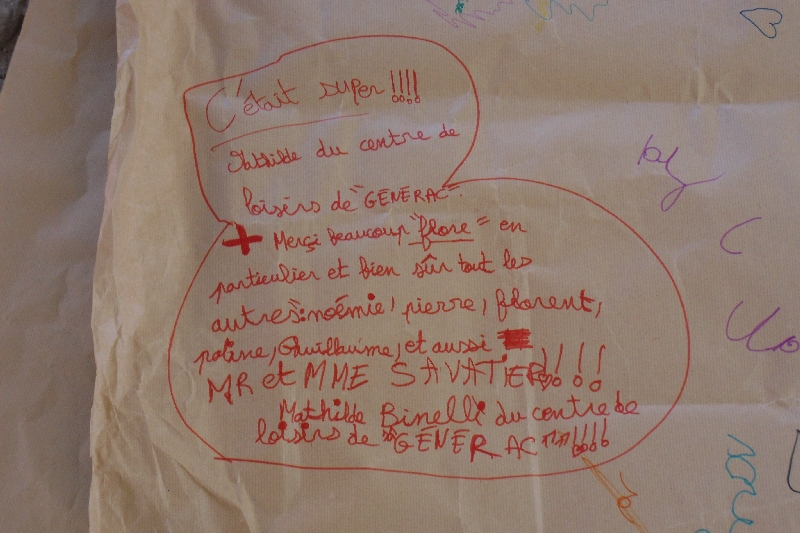 C'était super !!!!
Mathilde du centre de
loisirs de "GÉNÉRAC".
+ Merçi beaucoup "flore" en
particulier et bien sûr tout les
autres": noémie, pierre, florent,
poline, Ghuilhuime, et aussi
MR et MME SAVATIER !!!!
Mathilde Binelli du centre de
loisirs de "GÉNÉRAC" !!!!